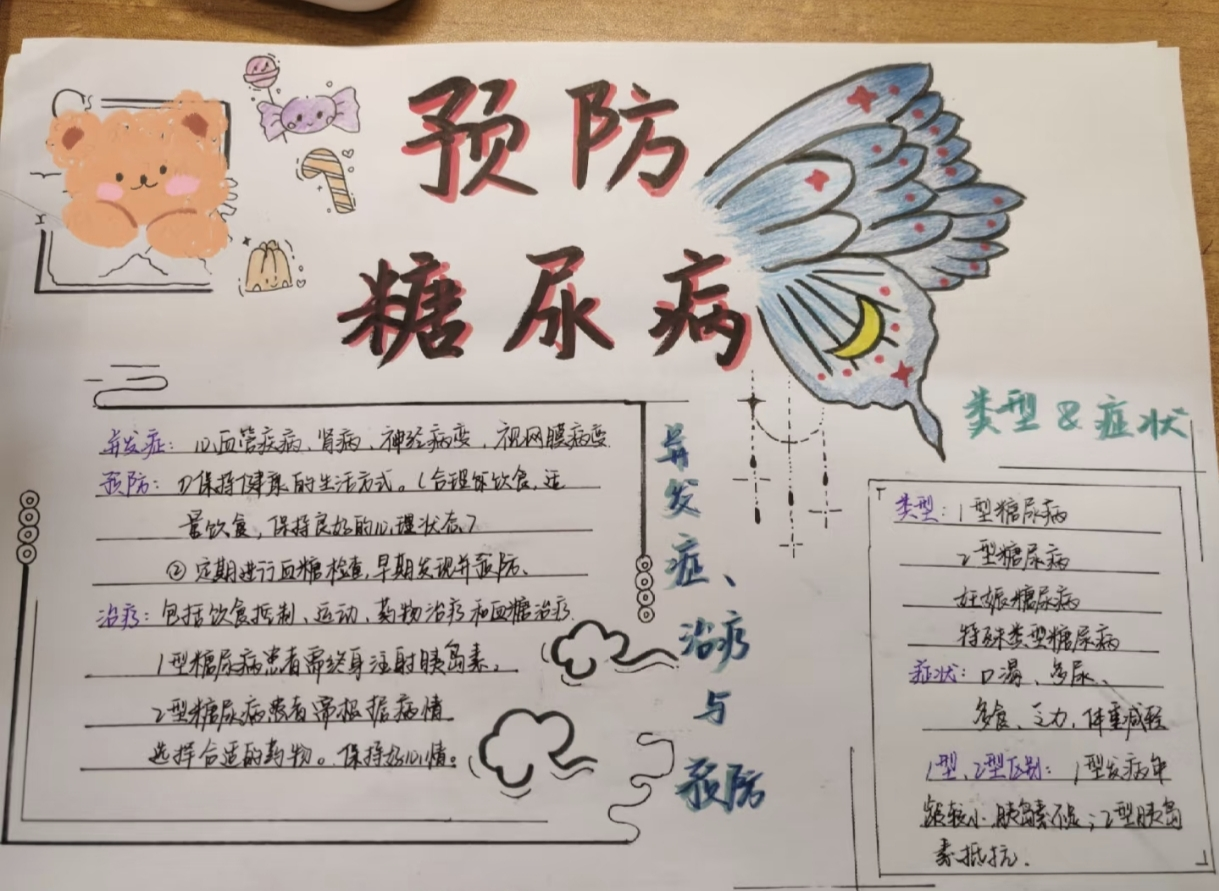 预防
糖尿病
并发症：心血管疾病、肾病、神经病变，视网膜病变
预防：①保持健康的生活方式。（合理饮食，适
量饮食，保持良好的心理状态）
②定期进行血糖检查，早期发现并预防、
治疗：包括饮食控制、运动、药物治疗和血糖治疗
1型糖尿病患者需终身注射胰岛素。
2型糖尿病患者需根据病情
选择合适的药物。保持好心情。
并发症、治疗与预防
类型&症状
类型：1型糖尿病
2型糖尿病
妊娠糖尿病
特殊类型糖尿病
症状：口渴、多尿、
多食、乏力，体重减轻
1型、2型区别：1型发病年
龄较小，胰岛素不足；2型胰岛
素抵抗.